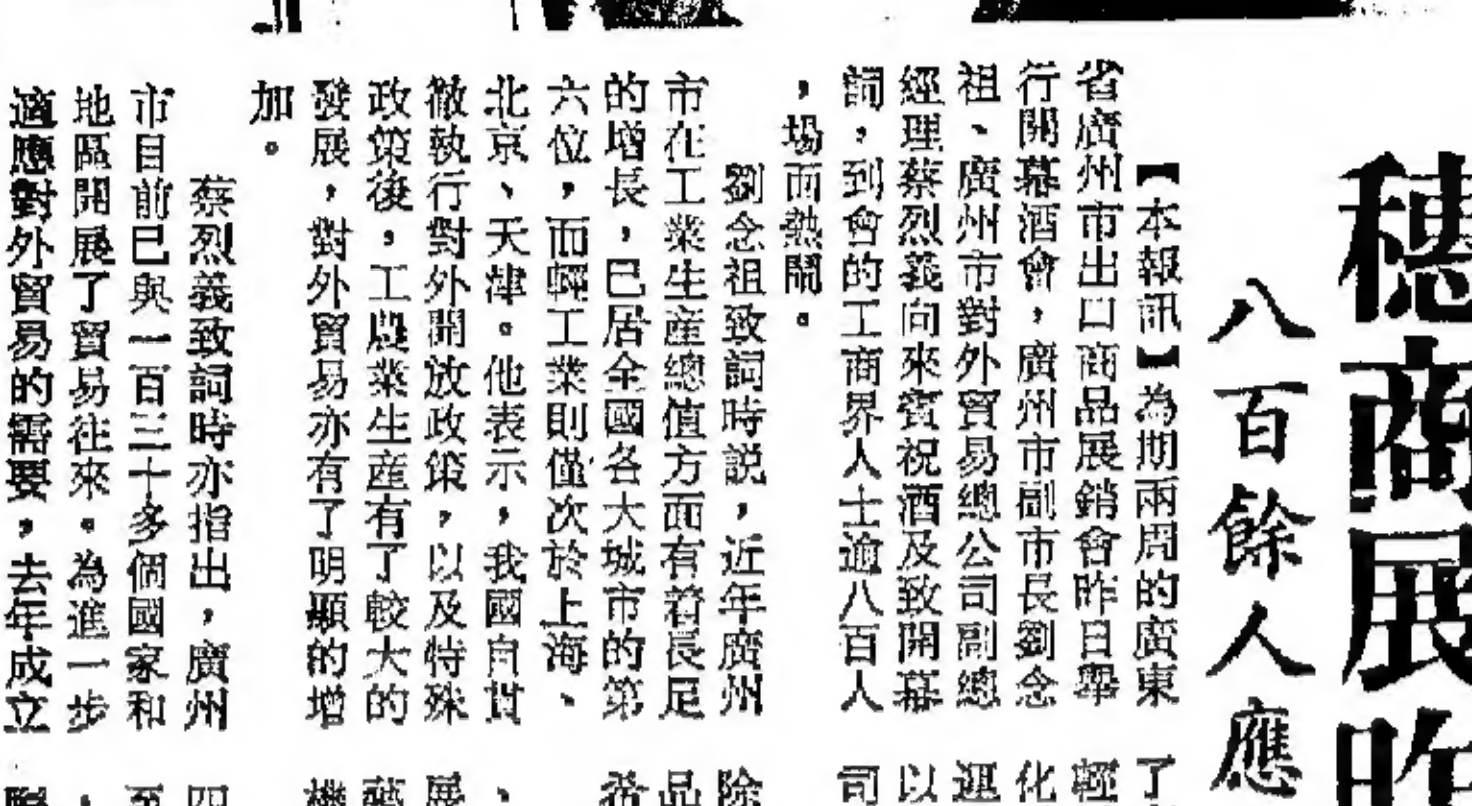 穗商展昨
八百餘人應
【本報訊】為期兩周的廣東
省廣州市出口商品展銷會昨日舉
行開幕酒會，廣州市副市長劉念
祖、廣州市對外貿易總公司副總
經理蔡烈義向來賓祝酒及致開幕
詞，到會的工商界人士逾八百人
，場面熱鬧。
劉念祖致詞時説，近年廣州
市在工業生產總值方面有着長足
的增長，已居全國各大城市的第
六位，而輕工業則僅次於上海、
北京、天津。他表示，我國自貫
徹執行對外開放政策，以及特殊
政策後，工農業生產有了較大的
發展，對外貿易亦有了明顯的增
加。
蔡烈義致詞時亦指出，廣州
市目前已與一百三十多個國家和
地區開展了貿易往來。為進一步
適應對外貿易的需要，去年成立
了
輕
化
運
以
司
除
品
、
展